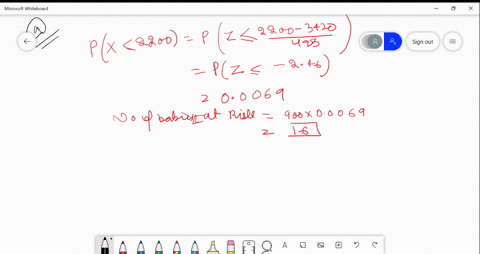 Microsoft Whiteboard
a
P(X < 2200) = P(Z ≤ 2200-3420/495)
Sign out
= P(Z ≤ -2.46)
= 0.0069
No of babies at Risk = 900 x 0.0069
= 1.6